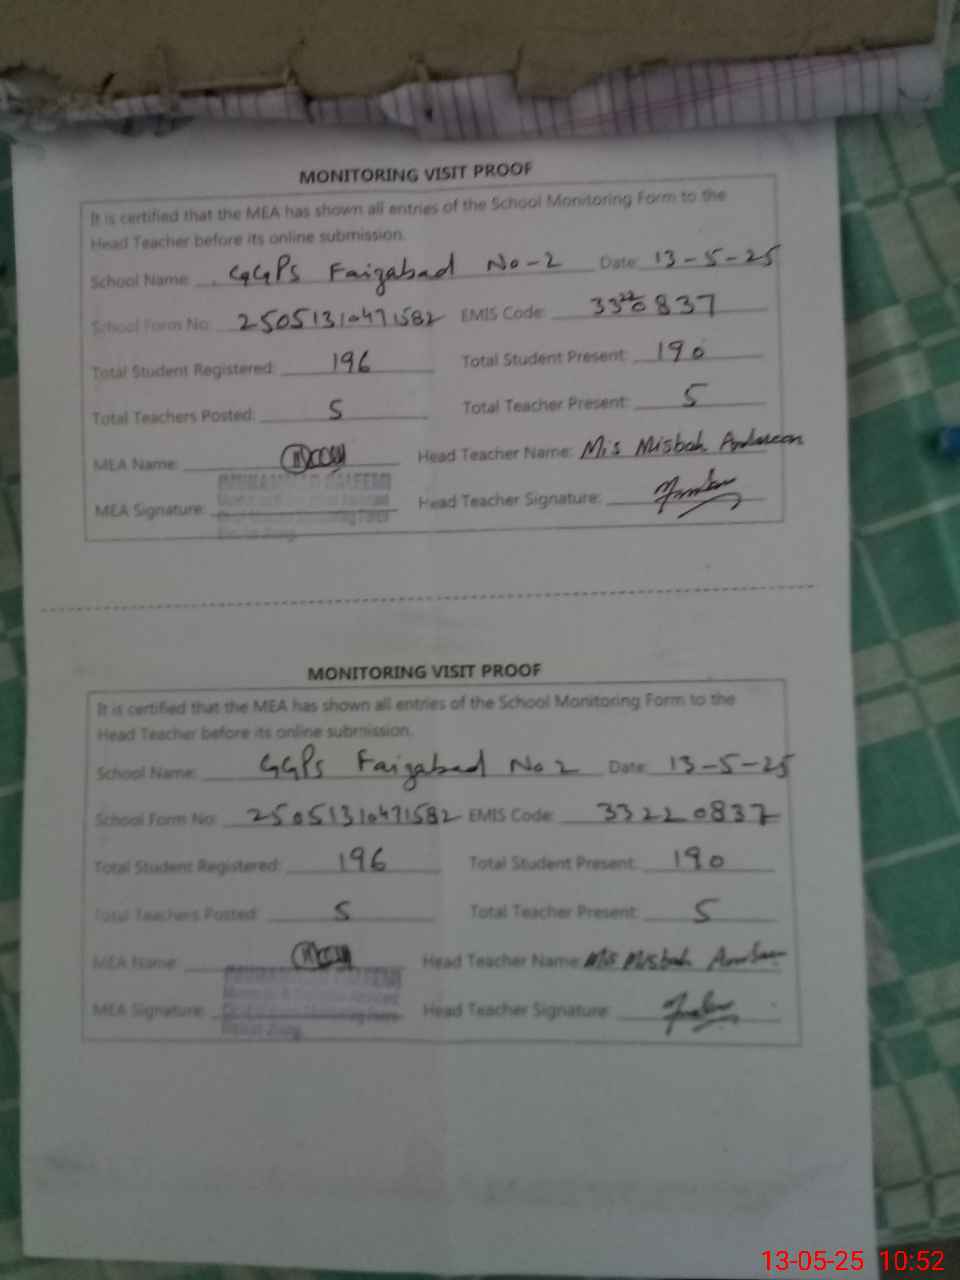 MONITORING VISIT PROOF
It is certified that the MEA has shown all entries of the School Monitoring Form to the
Head Teacher before its online submission.
School Name: GGPS Faizabad No-2 Date: 13-5-25
School Form No: 25051310471582 EMIS Code: 33220837
Total Student Registered: 196 Total Student Present: 190
Total Teachers Posted: 5 Total Teacher Present: 5
MEA Name: Head Teacher Name: Mis Misbah
MEA Signature: Head Teacher Signature:
MONITORING VISIT PROOF
It is certified that the MEA has shown all entries of the School Monitoring Form to the
Head Teacher before its online submission.
School Name: GGPS Faizabad No 2 Date: 13-5-25
School Form No: 25051310471582 EMIS Code: 33220837
Total Student Registered: 196 Total Student Present: 190
Total Teachers Posted: 5 Total Teacher Present: 5
MEA Name: Head Teacher Name: Mis Misbah
MEA Signature: Head Teacher Signature:
13-05-25 10:52